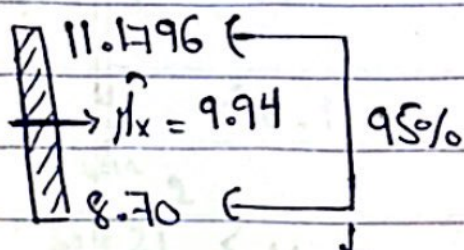 11.1796
μ̂x = 9.94
95%
8.70